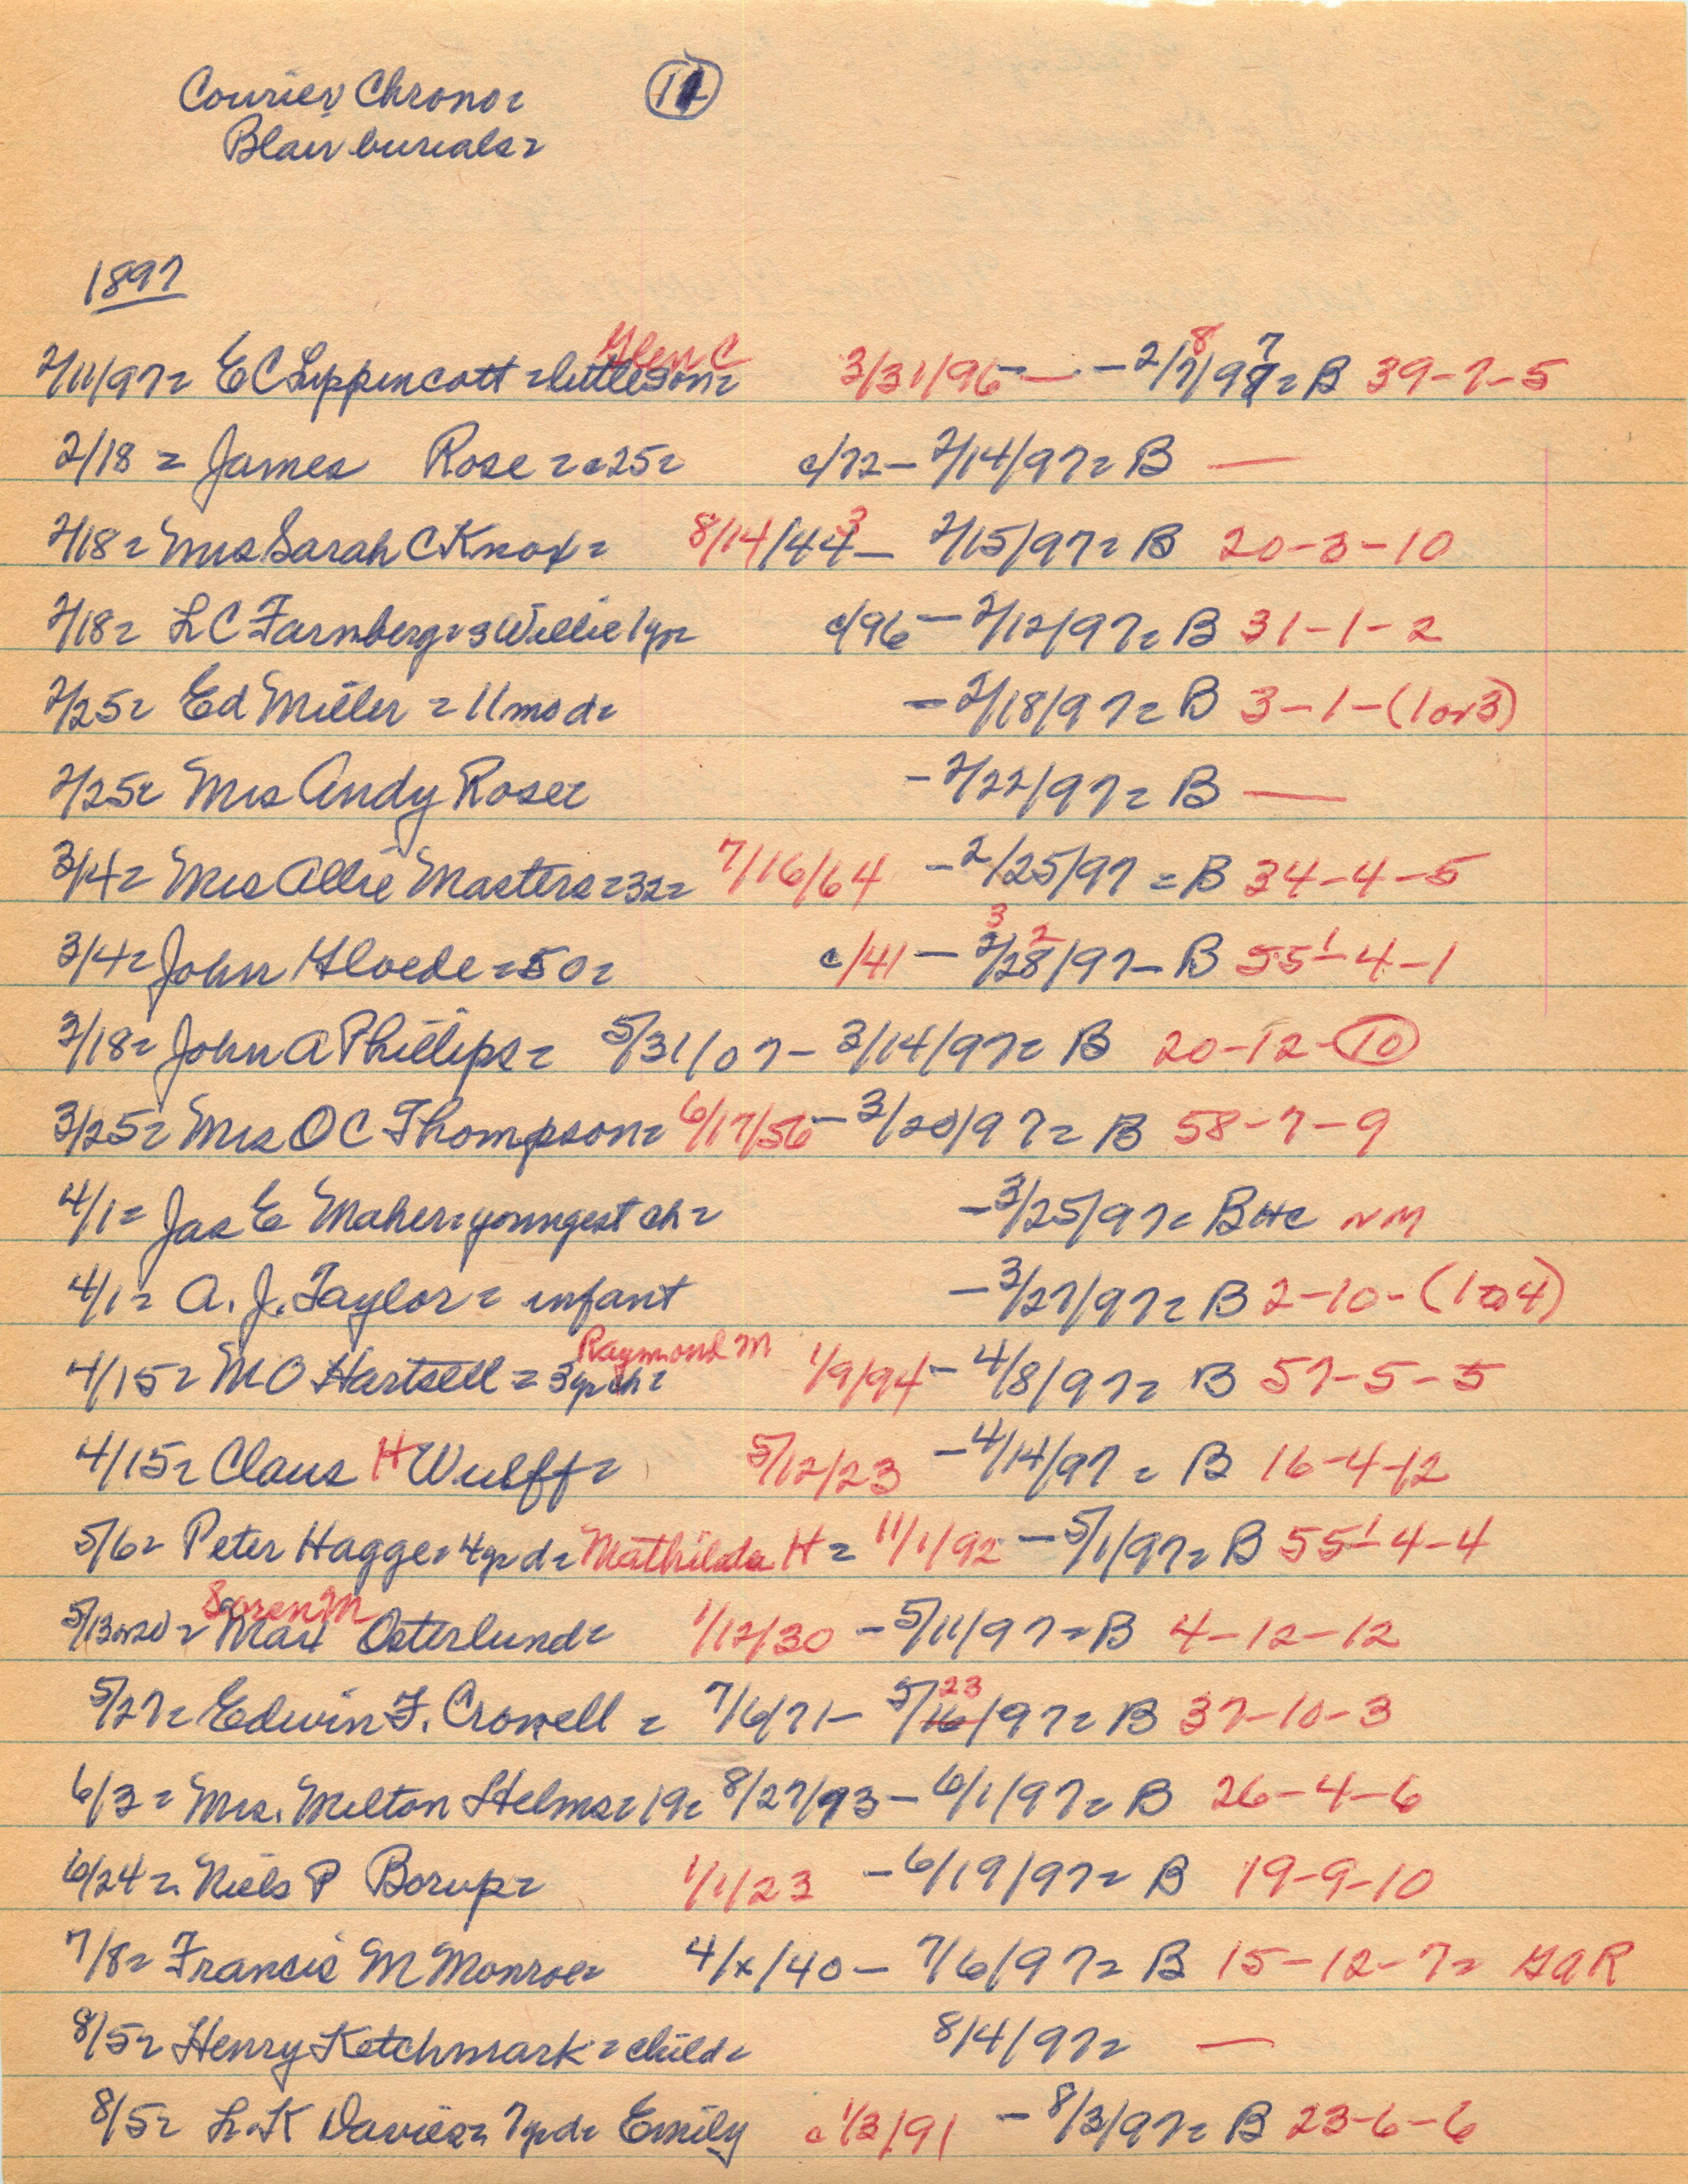 Courier Chrono= 11
Blair burials=
1897
2/11/97= E C Lippencott = little son= Glen C 3/31/96 — - 2/7/97= B 39-7-5
2/18 = James Rose = c25= c/72 - 2/14/97= B —
2/18= Mrs Sarah C Knox= 8/14/43 - 2/15/97= B 20-3-10
2/18= L C Farnberg= s Willie 1yr= c/96 - 2/12/97= B 31-1-2
2/25= Ed Miller = 11 mo d= - 2/18/97= B 3-1-(1 or 3)
2/25= Mrs Andy Rose= - 2/22/97= B —
3/4= Mrs Allie Masters=32= 7/16/64 - 2/25/97 = B 34-4-5
3/4= John Gloede=50= c/41 - 3/2/97- B 55¹-4-1
3/18= John A Phillips= 5/31/07- 3/14/97= B 20-12-10
3/25= Mrs O C Thompson= 6/17/56 - 3/20/97= B 58-7-9
4/1= Jas E Maher=youngest ch= - 3/25/97= BHC NM
4/1= A. J. Taylor= infant - 3/27/97= B 2-10-(1 to 4)
4/15= M O Hartsell = 3yr ch= Raymond M 1/9/94 - 4/8/97= B 57-5-5
4/15= Claus H Wulff= 5/12/23 - 4/14/97= B 16-4-12
5/6= Peter Hagge= 4yr d= Mathilda H = 11/1/92 - 5/1/97= B 55¹-4-4
5/13 or 20 = Soren M Max Osterlund= 1/12/30 - 5/11/97= B 4-12-12
5/27= Edwin F. Crowell = 7/6/71- 5/16/97= 23 B 37-10-3
6/3= Mrs. Milton Helms= 19= 8/27/93- 6/1/97= B 26-4-6
6/24= Niels P Borup= 1/1/23 - 6/19/97= B 19-9-10
7/8= Francis M Monroe= 4/x/40- 7/6/97= B 15-12-7= GAR
8/5= Henry Ketchmark= child= 8/4/97= —
8/5= L.K Davies= 7yr d= Emily c 1/3/91 - 8/3/97= B 23-6-6